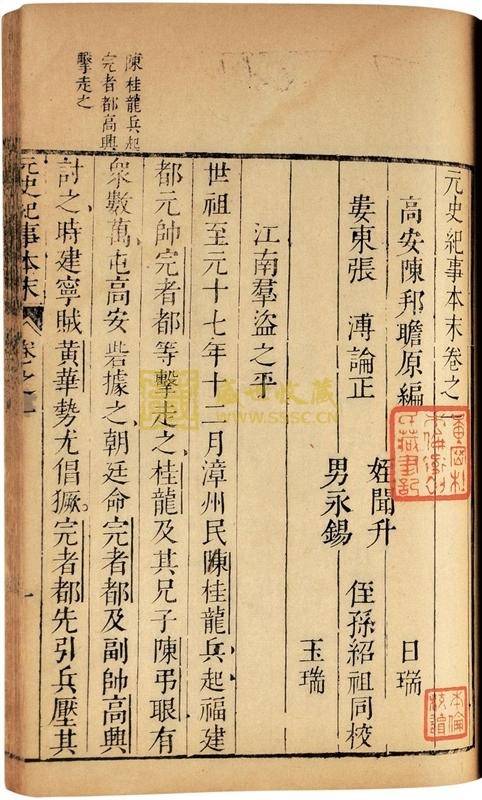 元史紀事本末卷之一
高安陳邦瞻原編
婁東張 溥論正
姪聞升
男永錫
日瑞
侄孫紹祖同校
玉瑞
江南羣盜之平
陳桂龍兵起
完者都高興
擊走之
世祖至元十七年十二月漳州民陳桂龍兵起福建
都元帥完者都等擊走之桂龍及其兄子陳弔眼有
衆數萬屯高安砦據之朝廷命完者都及副帥高興
討之時建寧賊黃華勢尤倡獗完者都先引兵壓其
元史紀事本末 卷之一 一
盛世收藏
WWW.SSSC.CN